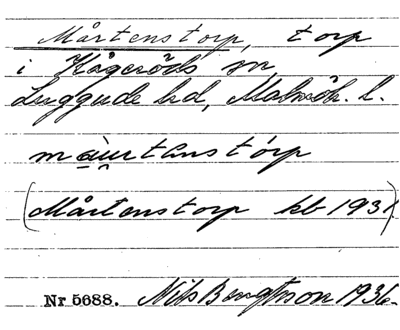 Mårtenstorp, torp
i Kågeröds sn
Luggude hd, Malmöh. l.
mau̯rtənstórp
(Mårtenstorp kb 1931)
Nr 5688. Nils Bengtsson 1936.